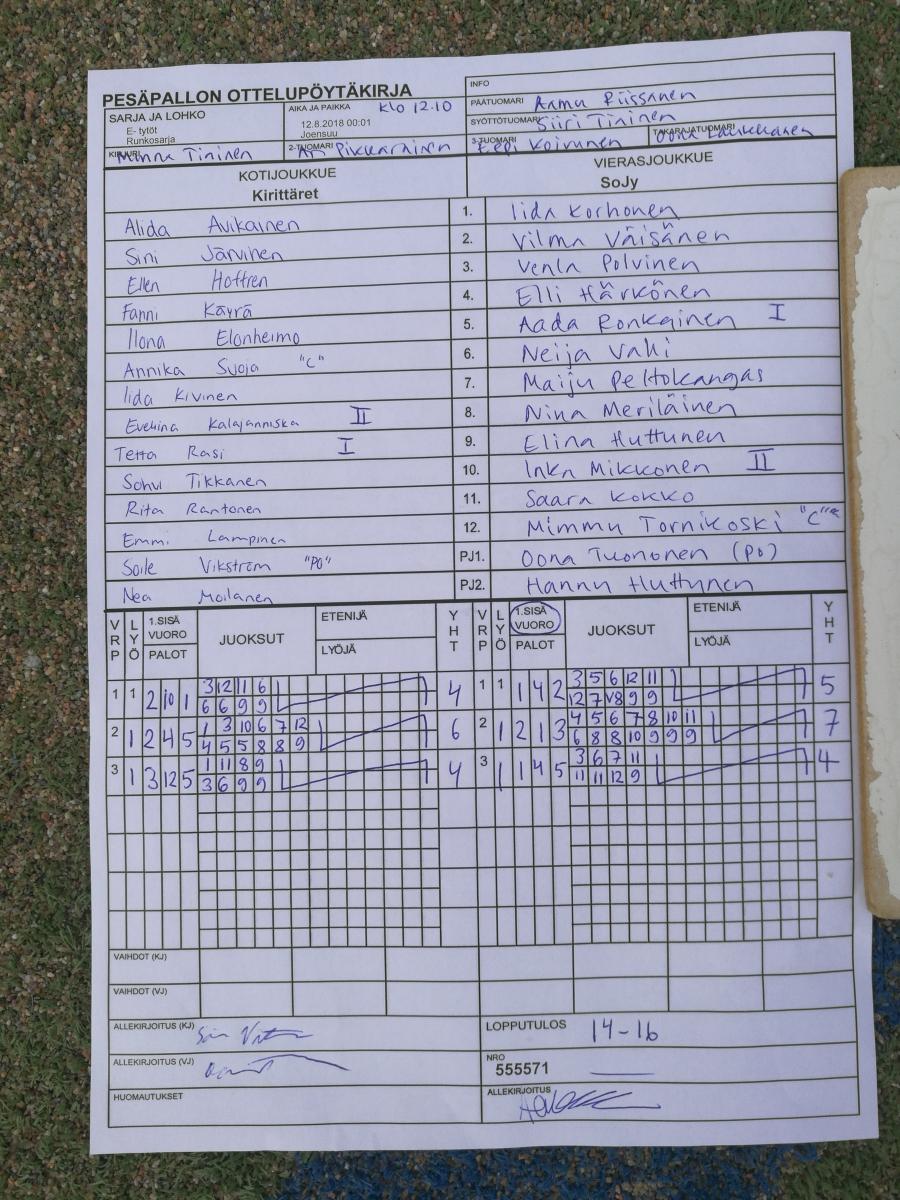 PESÄPALLON OTTELUPÖYTÄKIRJA
INFO
SARJA JA LOHKO
E- tytöt
Runkosarja
AIKA JA PAIKKA Klo 12.10
12.8.2018 00:01
Joensuu
PÄÄTUOMARI Aamu Riissanen
SYÖTTÖTUOMARI Siiri Tininen
KIRJURI Minna Tininen
2-TUOMARI Ari Pikkarainen
3-TUOMARI Eepi Koivunen
TAKARAJATUOMARI Oona Laukkanen
KOTIJOUKKUE
Kirittäret
VIERASJOUKKUE
SoJy
Alida Avikainen 1. Iida Korhonen
Sini Järvinen 2. Vilma Väisänen
Ellen Hoffren 3. Venla Polvinen
Fanni Käyrä 4. Elli Härkönen
Ilona Elonheimo 5. Aada Ronkainen I
Annika Suoja "C" 6. Neija Vahi
Iida Kivinen 7. Maiju Peltokangas
Eveliina Kalajanniska II 8. Nina Meriläinen
Tetta Rasi I 9. Elina Huttunen
Sohvi Tikkanen 10. Inka Mikkonen II
Rita Rantonen 11. Saara Kokko
Emmi Lampinen 12. Mimmu Tornikoski "C"
Soile Vikström "PO" PJ1. Oona Tuononen (PO)
Nea Moilanen PJ2. Hannu Huttunen
VRP LYÖ 1.SISÄ VUORO PALOT JUOKSUT ETENIJÄ LYÖJÄ YHT VRP LYÖ 1.SISÄ VUORO PALOT JUOKSUT ETENIJÄ LYÖJÄ YHT
1 1 2 10 1 3 12 11 6 4 1 1 1 4 2 3 5 6 12 11 5
6 6 9 9 12 7 V8 9 9
2 1 2 4 5 1 3 10 6 7 12 6 2 1 2 1 3 4 5 6 7 8 10 11 7
4 5 5 8 8 9 6 8 8 10 9 9 9
3 1 3 12 5 1 11 8 9 4 3 1 1 4 5 3 6 7 11 4
3 6 9 9 11 11 12 9
VAIHDOT (KJ)
VAIHDOT (VJ)
ALLEKIRJOITUS (KJ)
LOPPUTULOS 14-16
ALLEKIRJOITUS (VJ)
NRO
555571
HUOMAUTUKSET
ALLEKIRJOITUS